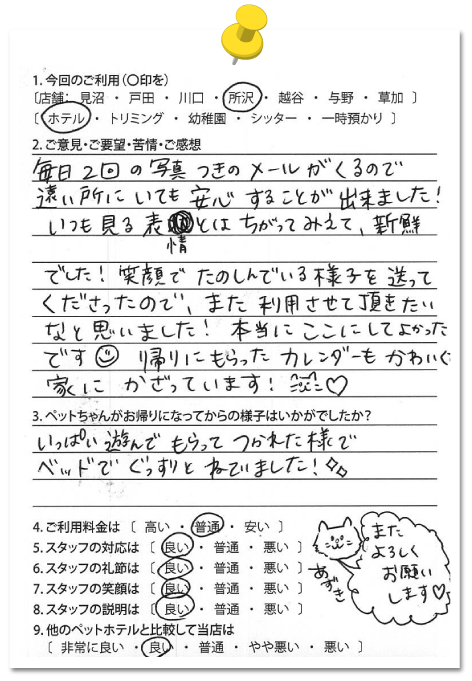 1. 今回のご利用(〇印を)
〔店舗: 見沼 ・ 戸田 ・ 川口 ・ 所沢 ・ 越谷 ・ 与野 ・ 草加 〕
〔 ホテル ・ トリミング ・ 幼稚園 ・ シッター ・ 一時預かり 〕
2. ご意見・ご要望・苦情・ご感想
毎日2回の写真つきのメールがくるので
遠い所にいても安心することが出来ました!
いつも見る表情とはちがってみえて、新鮮
でした! 笑顔でたのしんでいる様子を送って
くださったので、また利用させて頂きたい
なと思いました! 本当にここにしてよかった
です 帰りにもらったカレンダーもかわいく
家にかざっています!♡
3. ペットちゃんがお帰りになってからの様子はいかがでしたか?
いっぱい遊んでもらってつかれた様で
ベッドでぐっすりとねていました!
4. ご利用料金は 〔 高い ・ 普通 ・ 安い 〕
5. スタッフの対応は 〔 良い ・ 普通 ・ 悪い 〕
6. スタッフの礼節は 〔 良い ・ 普通 ・ 悪い 〕
7. スタッフの笑顔は 〔 良い ・ 普通 ・ 悪い 〕
8. スタッフの説明は 〔 良い ・ 普通 ・ 悪い 〕
9. 他のペットホテルと比較して当店は
〔 非常に良い ・ 良い ・ 普通 ・ やや悪い ・ 悪い 〕
また
よろしく
お願い
します♡
あずき